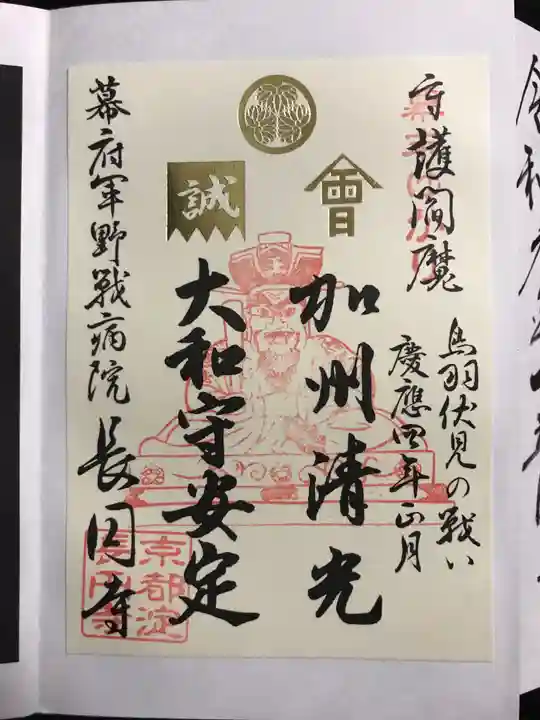 守護閻魔
鳥羽伏見の戦い
慶應四年正月
會
誠
加州清光
大和守安定
幕府軍野戦病院 長円寺
京都淀
長円寺